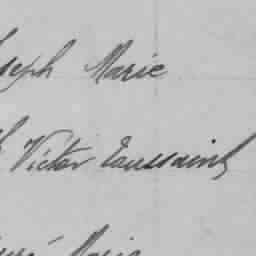 Joseph Marie
Victor Toussaint
Marie